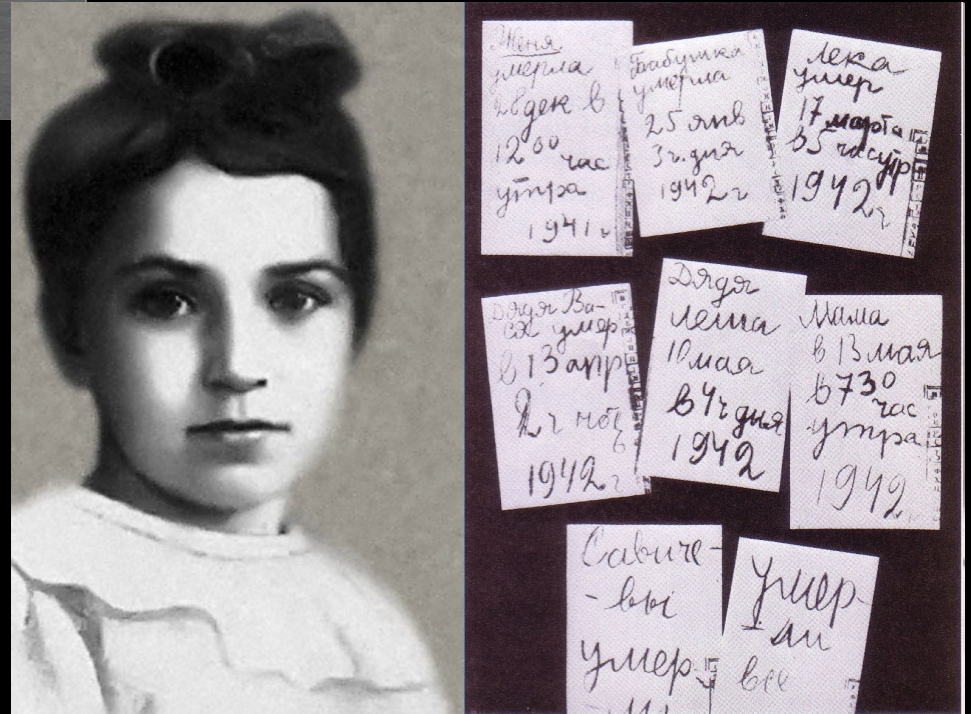 Женя
умерла
28 дек в
12 00 час
утра
1941 г
Бабушка
умерла
25 янв
3 ч. дня
1942 г
Лека
умер
17 марта
в 5 час утр
1942 г
Дядя Ва-
ся умер
в 13 апр
2 ч ноч
1942 г
Дядя
Леша
10 мая
в 4 ч дня
1942
Мама
в 13 мая
в 7 30
час
утра
1942 г
Савиче-
-вы
умер
ли
Умер-
ли
все